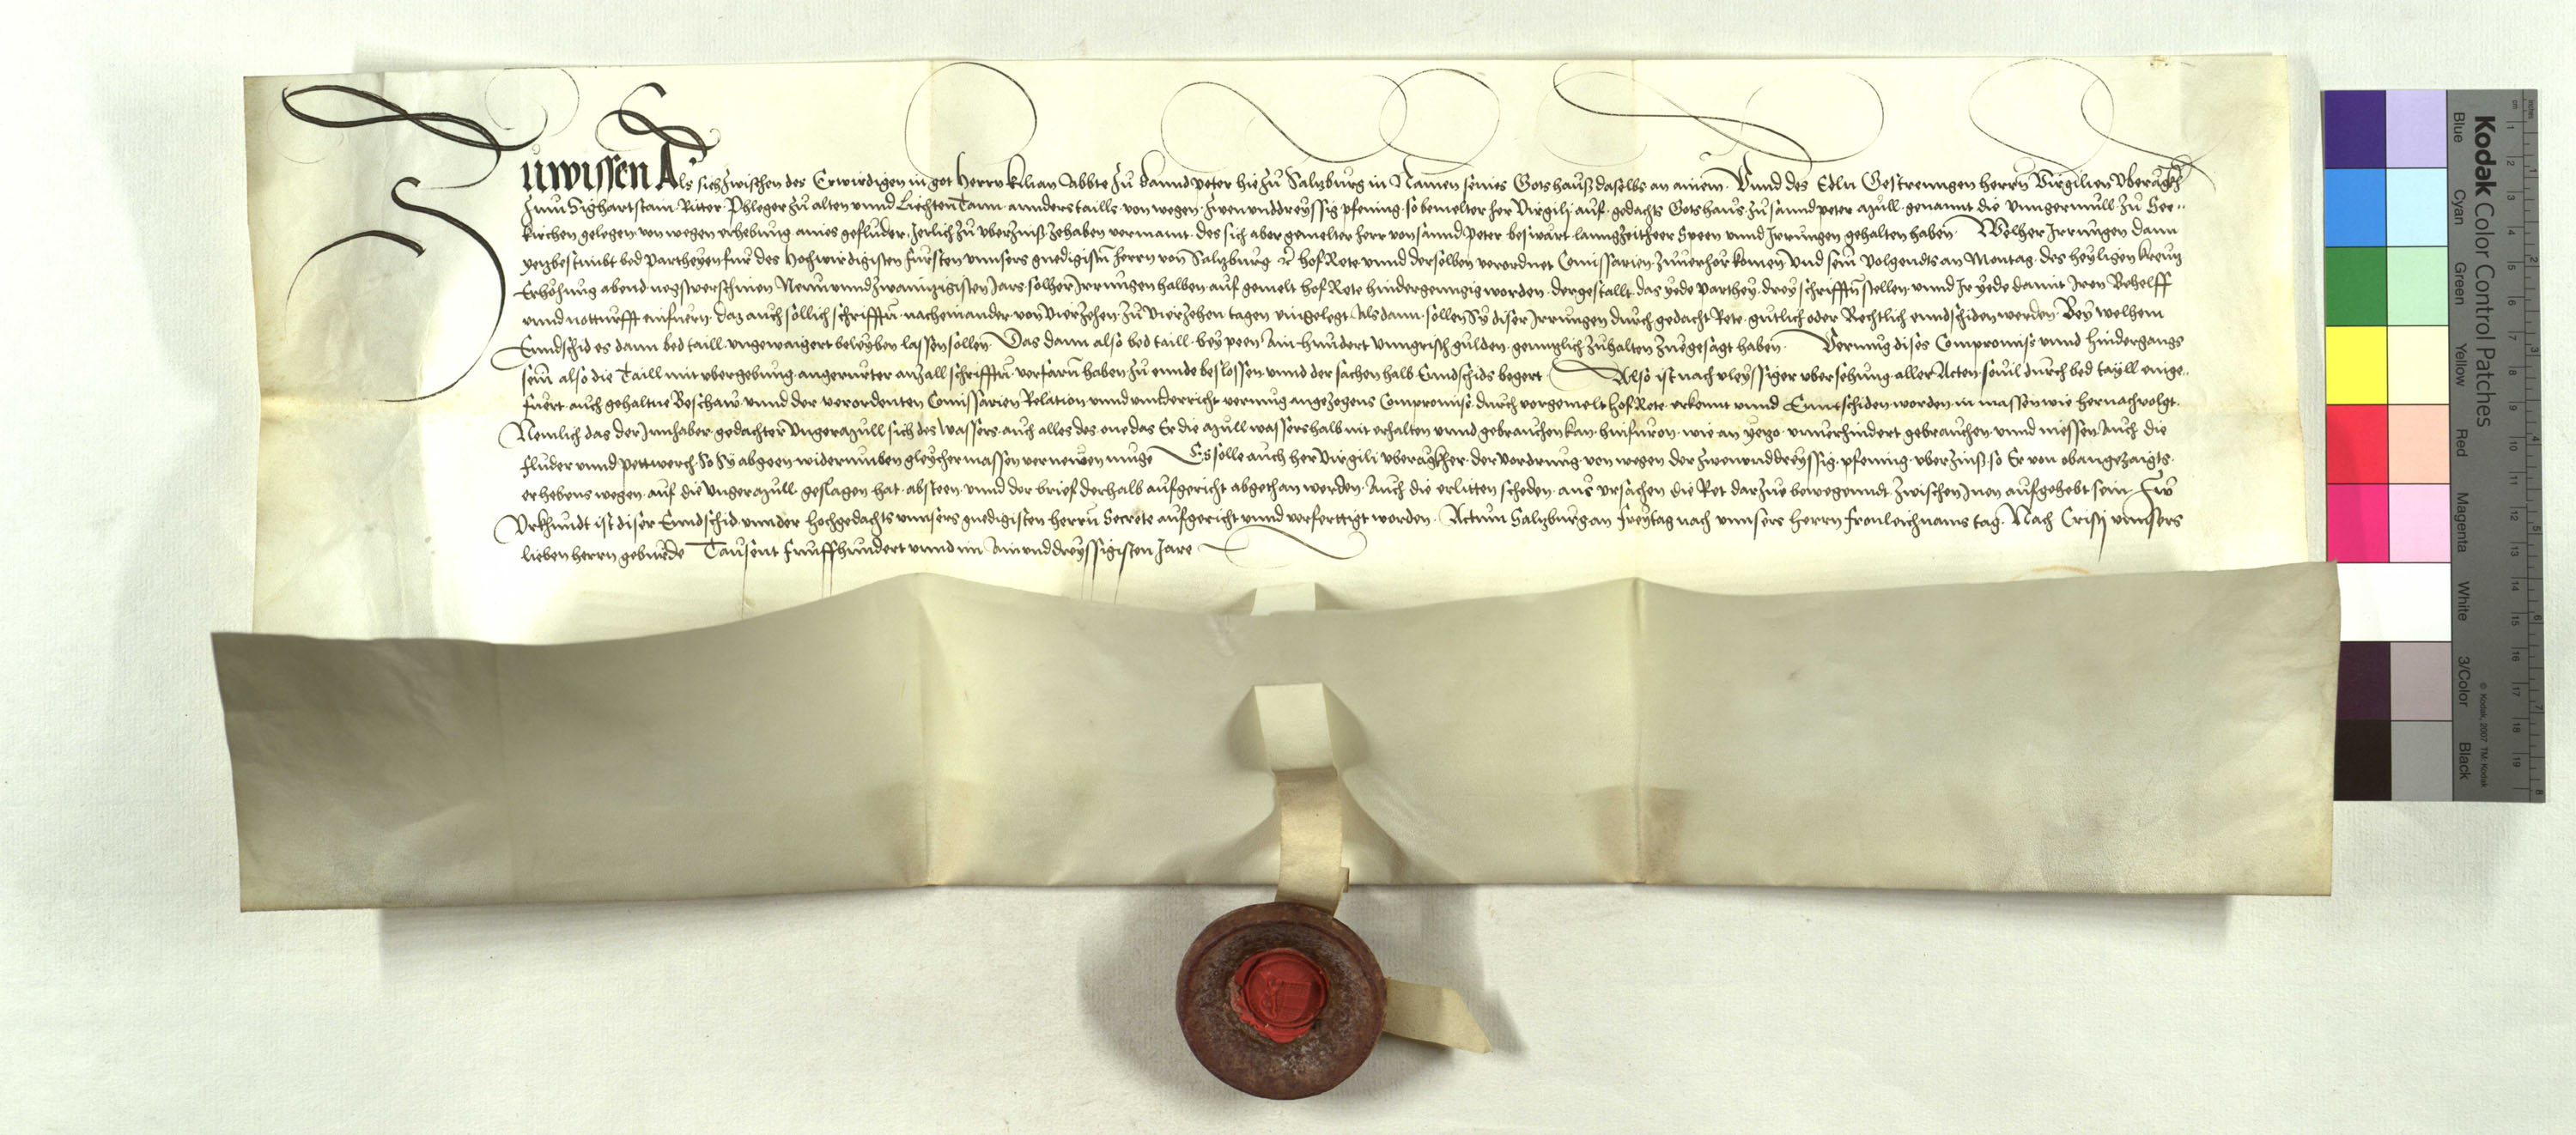 Zuwissen Als sich zwischen des Erwirdigen in got Herrn Kilian Abbte zu sannd Peter hie zu Saltzburg in Namen seines Gotshauß daselbs an ainem Unnd des Edln Gestrenngen Herrn Virgilien Uberagkh
zum Sighartstain Ritter Phleger zu alten unnd Liechten Tann annders taills von wegen zwenunddreyssig pfening so bemelter her Virgilj auf gedachts Gotshaus zu sannd peter mull genannt die Unngermull zu See
kirchen gelegen von wegen erhebung aines gefluder Jerlich zu uberzinß zehaben vermaint des sich aber gemelter herr von sannd Peter beswärt lanngzeitheer Speen unnd Irrungen gehalten haben Welher Irrungen dann
yetzbestimbt bed partheyen fur des Hochwirdigisten fursten unnsers gnedigistn herrn von Saltzburg hof Rete unnd derselben verordnet Comissarien zuverhör komen Und sein volgendts an Montag des heyligen kreutz
Erhöhung abend negstverschinen Neununndzwaintzigisten Jars solher Irrungen halben auf gemelt hof Rete hindergenngig worden dergestallt das yede parthey drey schrifftn stellen unnd Ir yede damit Iren Behelff
unnd notturfft einfuern daz auch sollich schrifftn nacheinander von Vierzehen zu Vierzehen tagen eingelegt Alsdann sollen Sy diser Irrungen durch gedacht Rete guetlich oder Rechtlich enndschiden werden Bey welhem
Enndschid es dann bed taill ungewaigert beleyben lassen sollen Das dann also bed taill bey peen Ain hundert Unngrisch gulden genntzlich zuhalten zuegesagt haben Vermug dises Compromiss unnd hindergangs
sein also die Taill mit ubergebung angerurter anzall schrifftn verfarn haben zu ennde beslossen unnd der sachen halb Enndschids begert Also ist nach vleyssiger ubersehung aller Acten sovil durch bed tayll einge
fuert auch gehaltne Beschaw unnd der verordenten Comissarien Relation unnd unnderricht vermug angezogens Compromiss durch vorgemelt hof Rete erkennt unnd Enntschiden worden in massen wie hernachvolgt
Nemlich das der Innhaber gedachter Ungermull sich des wassers auch alles des one das Er die mull wassershalb nit erhalten unnd gebrauchen kan hinfuron wie an yetzo unverhindert gebrauchen unnd niessen Auch die
fluder unnd pettwerch So Sy abgeen widerumben gleychermassen vernewen muge Es solle auch her Virgili uberagkher der vordrung von wegen der zwenunddreyssig pfening uberzinß so Er von obangezaigts
erhebens wegen auf die Ungermull geslagen hat absteen unnd der brief derhalb aufgericht abgethan werden Auch die erliten scheden aus ursachen die Ret darzue bewegenndt zwischen Inen aufgehebt sein Zw
Urkhundt ist diser Enndschid unnder hochgedachts unnsers gnedigisten herrn Secrete aufgericht unnd verferttigt worden Actum Saltzburg an freytag nach unnsers herrn fronleichnams tag Nach Cristi unnsers
lieben herrn geburde Tausent funffhundert unnd im Ainunddreyssigisten Jare
Kodak Color Control Patches
Blue Cyan Green Yellow Red Magenta White 3/Color Black
© Kodak, 2007 TM: Kodak